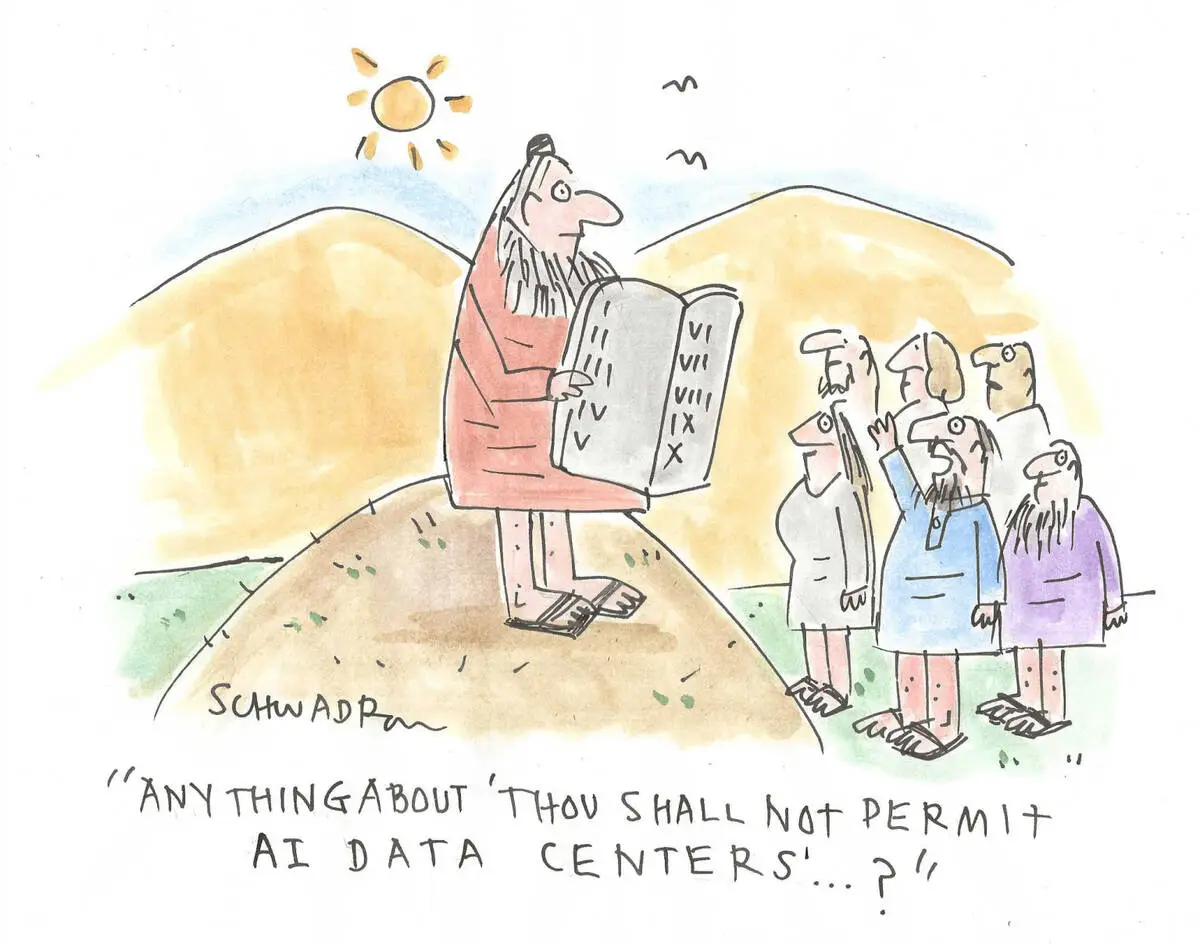 I
II
III
IV
V
VI
VII
VIII
IX
X
SCHWADRON
"ANY THING ABOUT 'THOU SHALL NOT PERMIT
AI DATA CENTERS'...?"